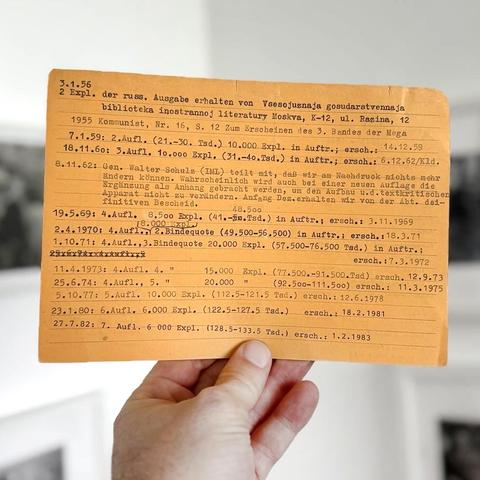 3.1.56
2 Expl. der russ. Ausgabe erhalten von Vsesojusnaja gosudarstvennaja
biblioteka inostrannoj literatury Moskva, K-12, ul. Razina, 12
1955 Kommunist, Nr. 16, S. 12 Zum Erscheinen des 3. Bandes der Mega
7.1.59: 2.Aufl. (21.-30. Tsd.) 10.000 Expl. in Auftr.; ersch.: 14.12.59
18.11.6o: 3.Aufl. 1o.ooo Expl. (31.-4o.Tsd.) in Auftr.; ersch.: 6.12.62/Kld.
8.11.62: Gen. Walter Schulz (IML) teilt mit, daß wir am Nachdruck nichts mehr
ändern können. Wahrscheinlich wird auch bei einer neuen Auflage die
Ergänzung als Anhang gebracht werden, um den Aufbau u.d.textkritischen
Apparat nicht zu verändern. Anfang Dez.erhalten wir von der Abt. dei-
finitiven Bescheid.
48.5oo
19.5.69: 4.Aufl. 8.5oo Expl. (41.- Tsd.) in Auftr.; ersch.: 3.11.1969
(8.000 Expl.)
2.4.1970: 4.Aufl., 2.Bindequote (49.500-56.500) in Auftr.; ersch.:18.3.71
1.10.71: 4.Aufl.,3.Bindequote 20.000 Expl. (57.500-76.500 Tsd.) in Auftr.;
ersch.:7.3.1972
11.4.1973: 4.Aufl. 4. " 15.000 Expl. (77.500-91.500.Tsd) ersch. 12.9.73
25.6.74: 4.Aufl., 5. " 20.000 " (92.5oo-111.5oo) ersch.: 11.3.1975
5.10.77: 5.Aufl. 10.000 Expl. (112.5-121.5 Tsd.) ersch.: 12.6.1978
23.1.80: 6.Aufl. 6.000 Expl. (122.5-127.5 Tsd.) ersch.: 18.2.1981
27.7.82: 7. Aufl. 6 000 Expl. (128.5-133.5 Tsd.) ersch.: 1.2.1983